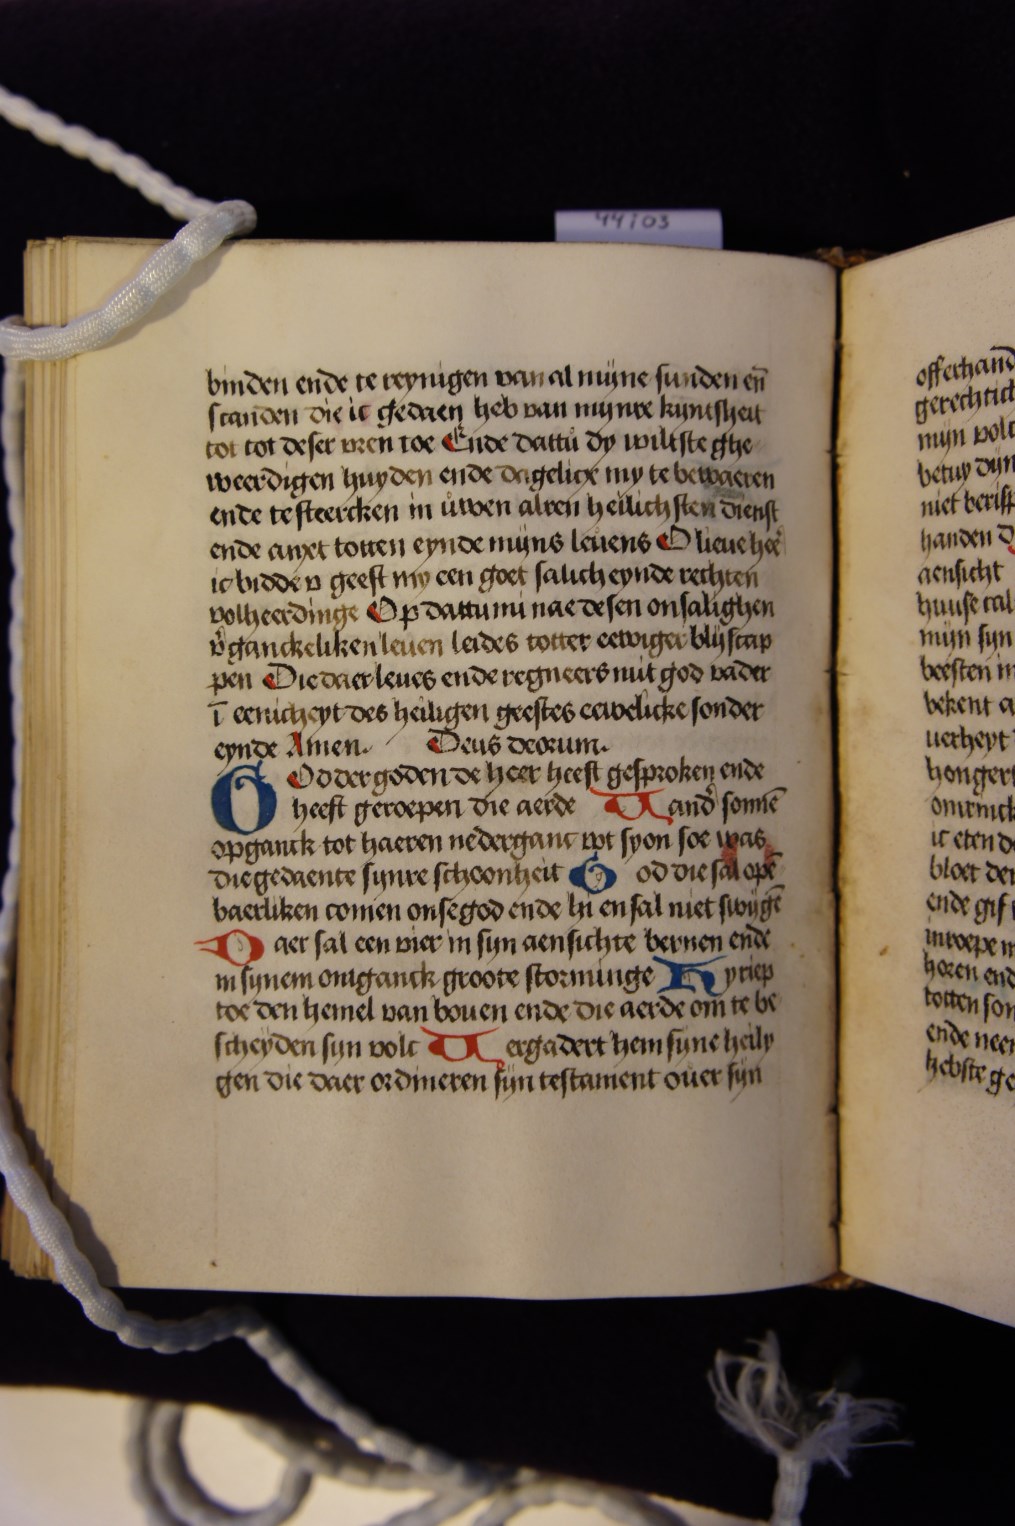 44i03
binden ende te reynigen van al mijne sunden en̄
scanden die ic gedaen heb van mynre kyntsheit
tot tot deser vren toe Ende dattu dy willste ghe
weerdigen huyden ende dagelicx my te bewaeren
ende te steercken in uwen alren heilichsten dienst
ende anxt totten eynde mijns leuens O lieue
ic bidde v geeft my een goet salich eynde rechten
volheerdinge Op dattu mi nae desen onsalighen
ganckeliken leuen leides totter eewiger blijscap
pen Die daer leues ende regneers mit god vader
ī eenicheyt des heiligen geestes eewelicke sonder
eynde Amen. Deus deorum.
God der goden de heer heeft gesproken ende
heeft geroepen die aerde Vand sonnē
opganck tot haeren nederganc wt syon soe was
die gedaente synre schoonheit God die sal opē
baerliken comen onse god ende hi en sal niet swigē
Daer sal een vier in sijn aensichte bernen ende
in synem omganck groote storminge Hy riep
toe den hemel van bouen ende die aerde om̄ te be
scheyden sijn volc Vergadert hem sijne heily
gen die daer ordineren sijn testament ouer sijn
mijn volc
niet
handen
aensicht
mijn
beesten
bekent
ic eten
bloet
ende
horen
totten
ende